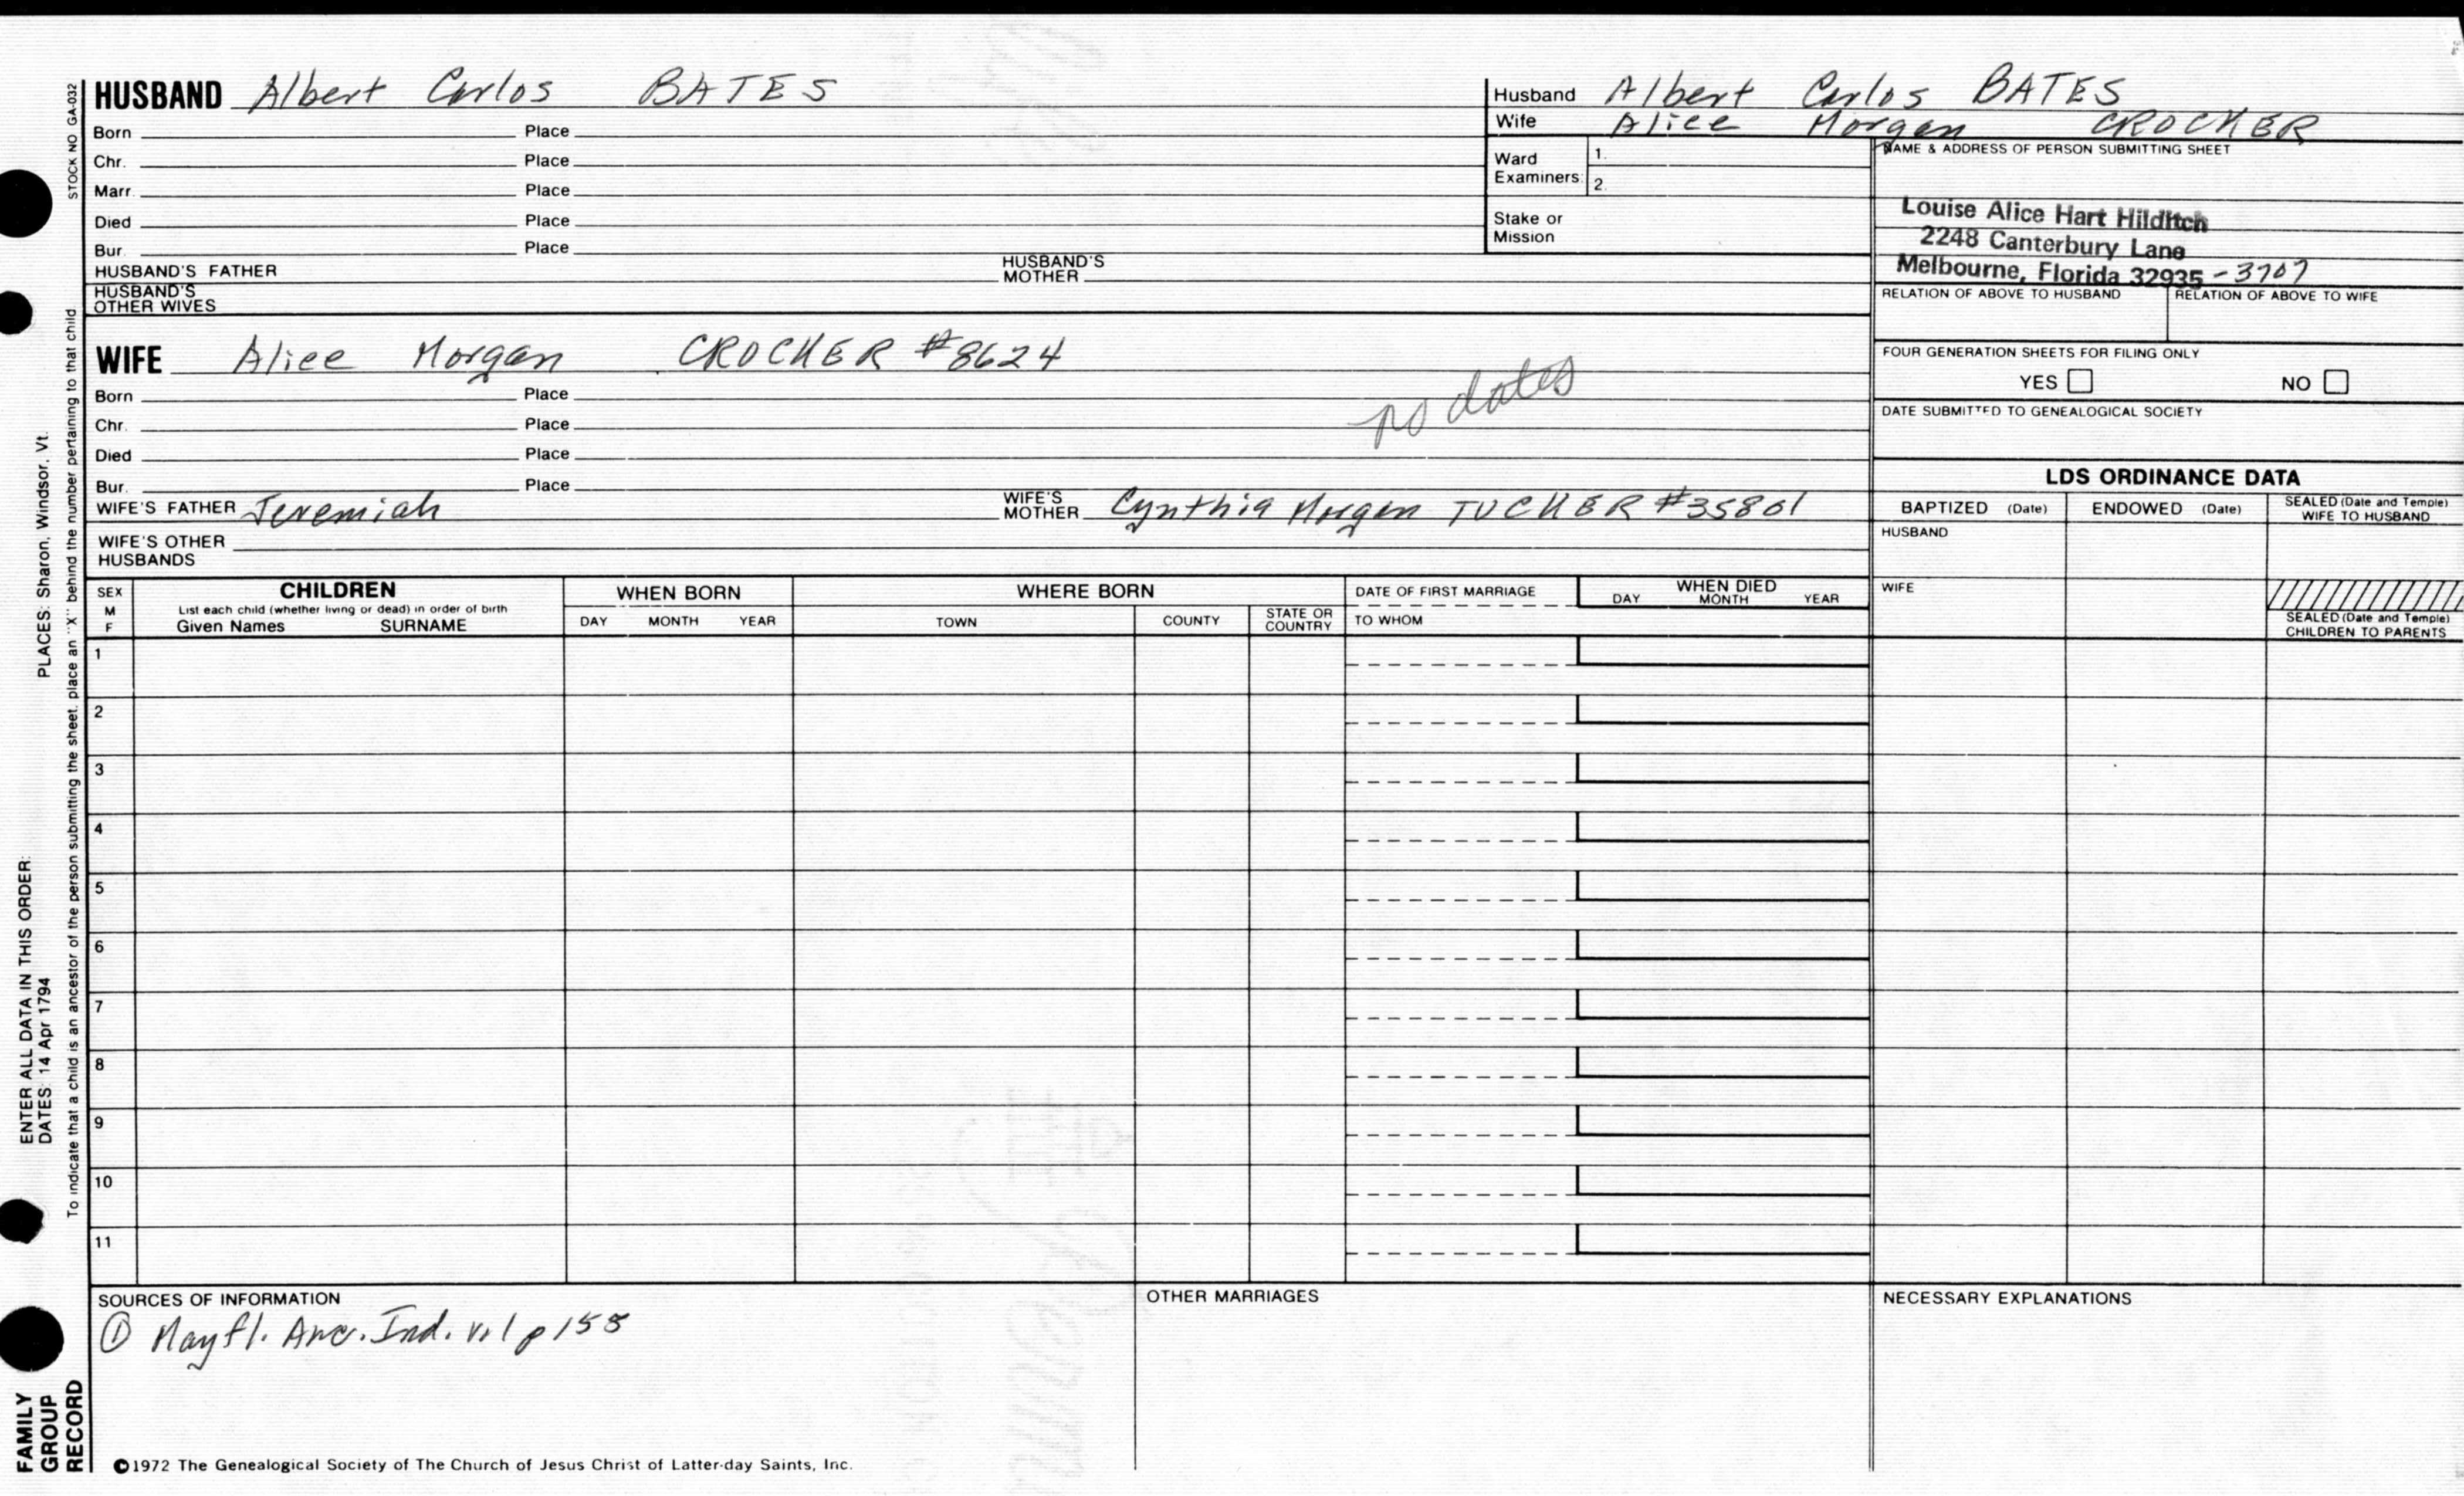 HUSBAND Albert Carlos BATES
Born Place
Chr. Place
Marr. Place
Died Place
Bur. Place
HUSBAND'S FATHER HUSBAND'S MOTHER
HUSBAND'S OTHER WIVES
Husband Albert Carlos BATES
Wife Alice Morgan CROCKER
Ward Examiners: 1.
2.
Stake or Mission
NAME & ADDRESS OF PERSON SUBMITTING SHEET
Louise Alice Hart Hilditch
2248 Canterbury Lane
Melbourne, Florida 32935 - 3707
RELATION OF ABOVE TO HUSBAND RELATION OF ABOVE TO WIFE
FOUR GENERATION SHEETS FOR FILING ONLY
YES NO
DATE SUBMITTED TO GENEALOGICAL SOCIETY
WIFE Alice Morgan CROCKER #8624
Born Place
no dates
Chr. Place
Died Place
Bur. Place
WIFE'S FATHER Jeremiah WIFE'S MOTHER Cynthia Morgan TUCKER #35801
WIFE'S OTHER HUSBANDS
LDS ORDINANCE DATA
BAPTIZED (Date) ENDOWED (Date) SEALED (Date and Temple) WIFE TO HUSBAND
HUSBAND
WIFE
SEALED (Date and Temple) CHILDREN TO PARENTS
SEX M F
CHILDREN
List each child (whether living or dead) in order of birth
Given Names SURNAME
WHEN BORN
DAY MONTH YEAR
WHERE BORN
TOWN COUNTY STATE OR COUNTRY
DATE OF FIRST MARRIAGE
TO WHOM
WHEN DIED
DAY MONTH YEAR
1
2
3
4
5
6
7
8
9
10
11
SOURCES OF INFORMATION
① Mayfl. Anc. Ind. v.1 p 155
OTHER MARRIAGES
NECESSARY EXPLANATIONS
©1972 The Genealogical Society of The Church of Jesus Christ of Latter-day Saints, Inc.
STOCK NO GA-032
To indicate that a child is an ancestor of the person submitting the sheet, place an "X" behind the number pertaining to that child
PLACES: Sharon, Windsor, Vt.
ENTER ALL DATA IN THIS ORDER:
DATES: 14 Apr 1794
FAMILY
GROUP
RECORD